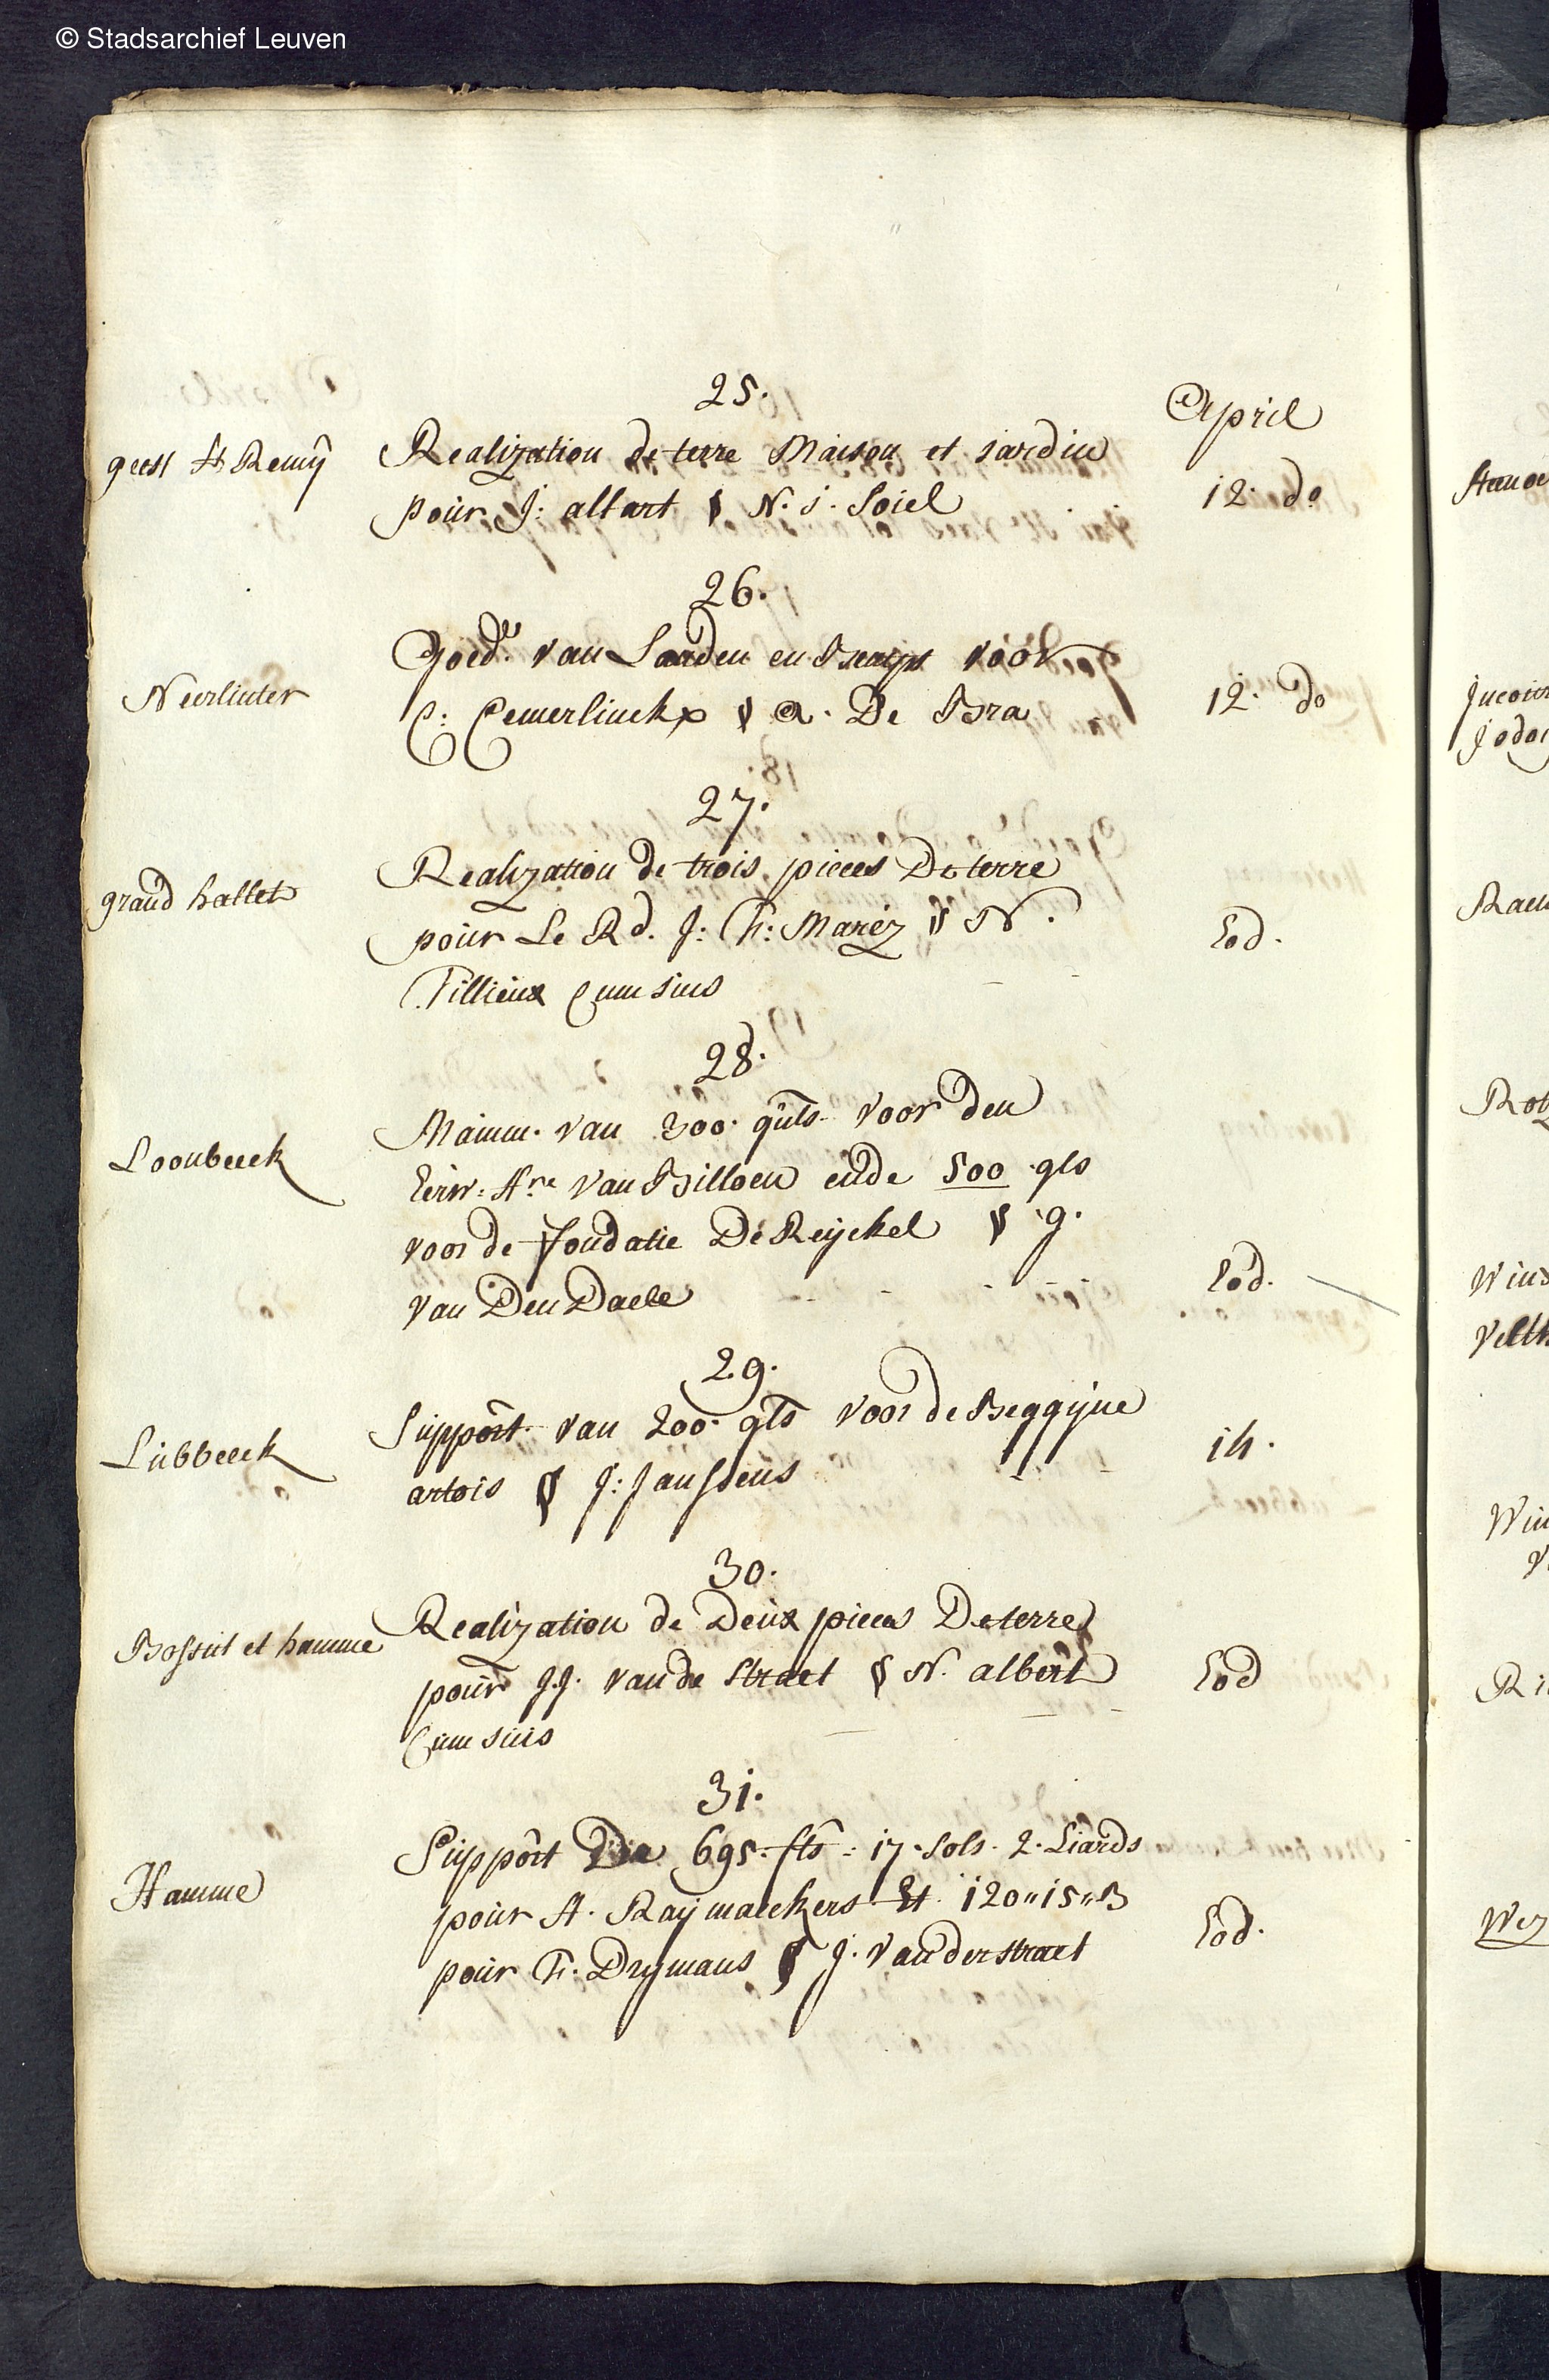 © Stadsarchief Leuven
25.
April
geest St Remÿ
Realization de terre Maison et jardin
pour J: allart § N. J. Soiel
12. do
26.
Neerlinter
Goed.s van Landen en Beempt voor
C: Cemerlinckx § a. De Bra
12. do
27.
grand hallet
Realization de trois pieces De terre
pour Le Rd. J: h: Maréz § N.
Tillieux Cum suis
Eod.
28.
Loonbeeck
Mainm. van 300. guls. voor den
Eerw: Hre van Billoen ende 500 gls
voor de fondatie De Reyckel § g.
van Den Daele
Eod.
29.
Lubbeeck
Support van 200. gls voor de Beggijne
artois § J: Janssens
14.
30.
Bossut et hamme
Realization de Deux pieces De terre
pour J.J. vande Straet § N. albert
Cum suis
Eod
31.
Hamme
Support De 695. fls = 17. sols. 2. Liards
pour A. Raymaeckers Et 120"15"3
pour h. Drymans § J. Vanderstraet
Eod.
Rael
Wins
Velth
Win
Ri
Wez